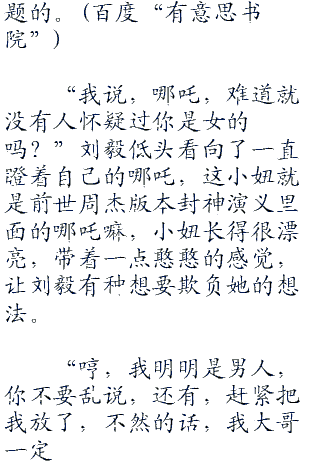 题的。(百度“有意思书
院”)
“我说，哪吒，难道就
没有人怀疑过你是女的
吗？”刘毅低头看向了一直
蹬着自己的哪吒，这小妞就
是前世周杰版本封神演义里
面的哪吒嘛，小妞长得很漂
亮，带着一点憨憨的感觉，
让刘毅有种想要欺负她的想
法。
“哼，我明明是男人，
你不要乱说，还有，赶紧把
我放了，不然的话，我大哥
一定